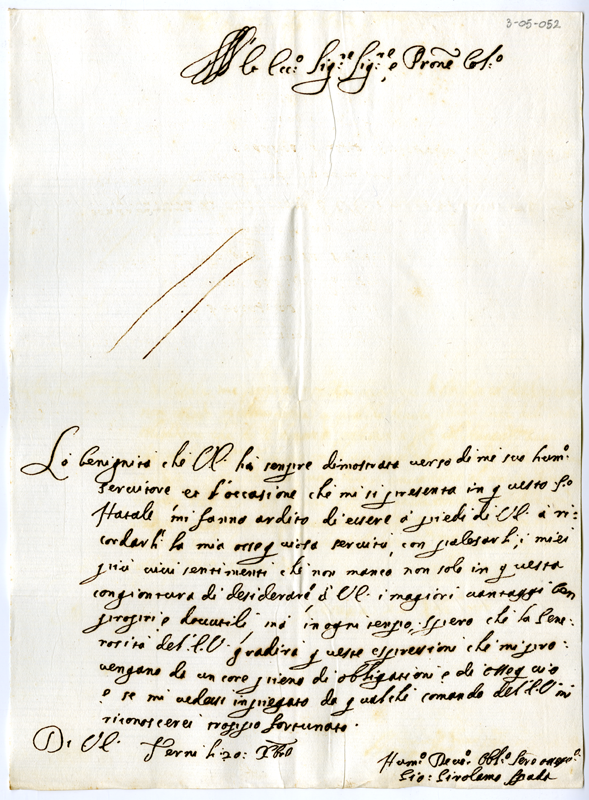 3-05-052
Ecc.º Sig.re Sig.re, e Prone Col.º
La benignità che VS. ha sempre dimostrata verso di me suo hum.º
servitore et l'occasione che mi si presenta in questo S.º
Natale mi fanno ardito di essere à piedi di VS. à ri-
cordarli la mia ossequiosa servitù, con palesarli, i miei
più vivi sentimenti che non manco non solo in questa
congiontura di desiderare à VS. i magiori vantaggi ben
prosperi e dovutili mà in ogni tempo, spero che la Gene-
rosità del S.V gradirà queste espressioni che mi pro-
vengano da un core pieno di obligationi e di ossequio
e se mi vedessi impiegato da qualche comando del S.V mi
riconoscerei troppo fortunato.
Di VS. Terni li 20: Xbre
Hum.º Devo.º Obl.º Sero osseq.º
Gio: Girolamo Spada